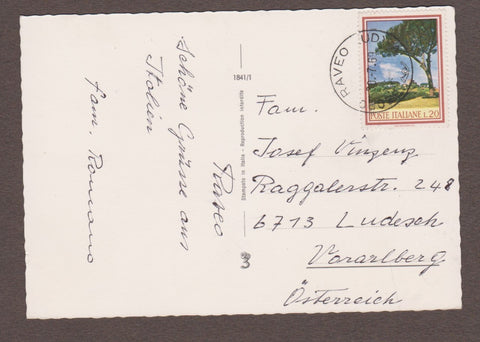 Schöne Grüsse aus
Raveo
Italien
Fam. Romano
1841/1
Stampato in Italia - Reproduction interdite
RAVEO (UD)
POSTE ITALIANE L.20
Fam.
Josef Vinzenz
Raggalerstr. 248
6713 Ludesch
Vorarlberg
Österreich